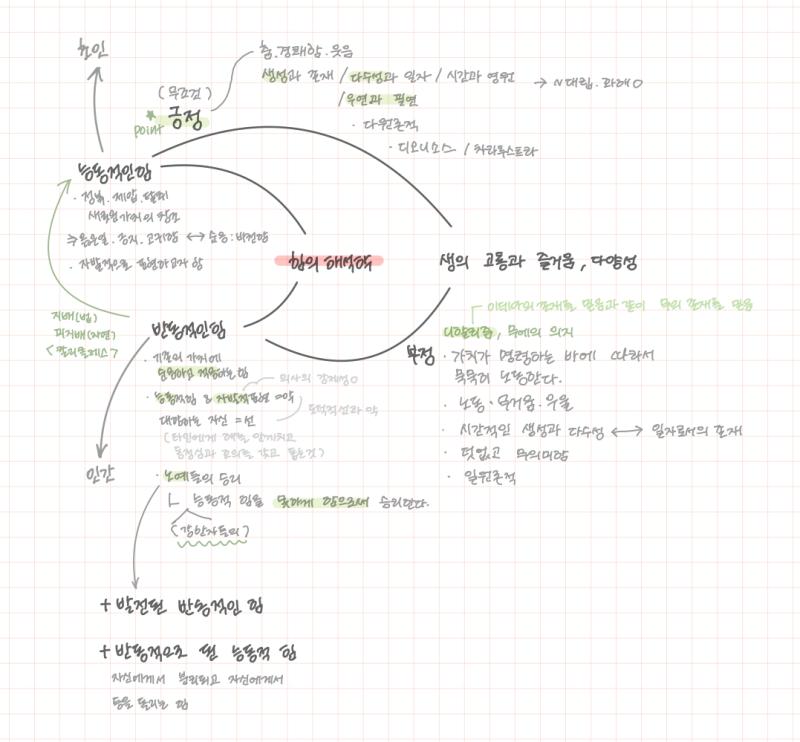 초인
춤.경쾌함.웃음
생성과 존재 / 다수성과 일자 / 시간과 영원
/우연과 필연
→ N대립.화해O
(무조건)
긍정
point
· 다원론적
· 디오니소스 / 차라투스트라
능동적인힘
· 정복.제압.탈취
새로운가치의 창조
↔ 순응:비천함
· 자발적으로 표현하고자 함
힘의 해석학
생의 고통과 즐거움, 다양성
지배(법)
피지배(자연)
<칼리클레스>
반동적인힘
· 기존의 가치에
순응하고 적응하는힘
의사의 강제성O
· 능동적힘 & 자발적표현 =악
대항하는 자신 =선
도덕적선과 악
(타인에게 해를 안끼치고
동정심과 호의를 갖고 돕는것)
· 노예들의 승리
능동적 힘을 못하게 함으로써 승리한다.
(강한자들의)
인간
이데아의 존재를 믿음과 같이 무의 존재를 믿음
니힐리즘, 무에의 의지
부정
· 가치가 명령하는 바에 따라서
묵묵히 노동한다.
· 노동.무거움.우울
· 시간적인 생성과 다수성 ↔ 일자로서의 존재
· 덧없고 무의미함
· 일원론적
+ 발전된 반동적인 힘
+ 반동적으로 된 능동적 힘
자신에게서 분리되고 자신에게서
등을 돌리는 힘